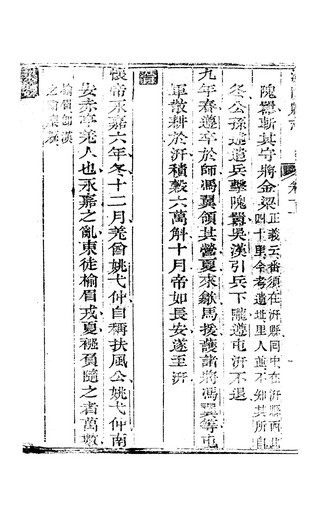 隗囂斬其守將金梁正義云番須在汧縣回中在汧縣西北
四十里今考遺址里人並不知其所自
冬公孫述遣兵擊隗囂吳漢引兵下隴遵屯汧不退
九年春遵卒於師馮異領其營夏來歙馬援護諸將馮異等屯
軍散耕於汧積穀六萬斛十月帝如長安遂至汧
晉
懷帝永嘉六年冬十二月羌酋姚弋仲自稱扶風公姚弋仲南
安赤亭羌人也永嘉之亂東徙榆眉戎夏襁負隨之者萬數
榆眉即漢